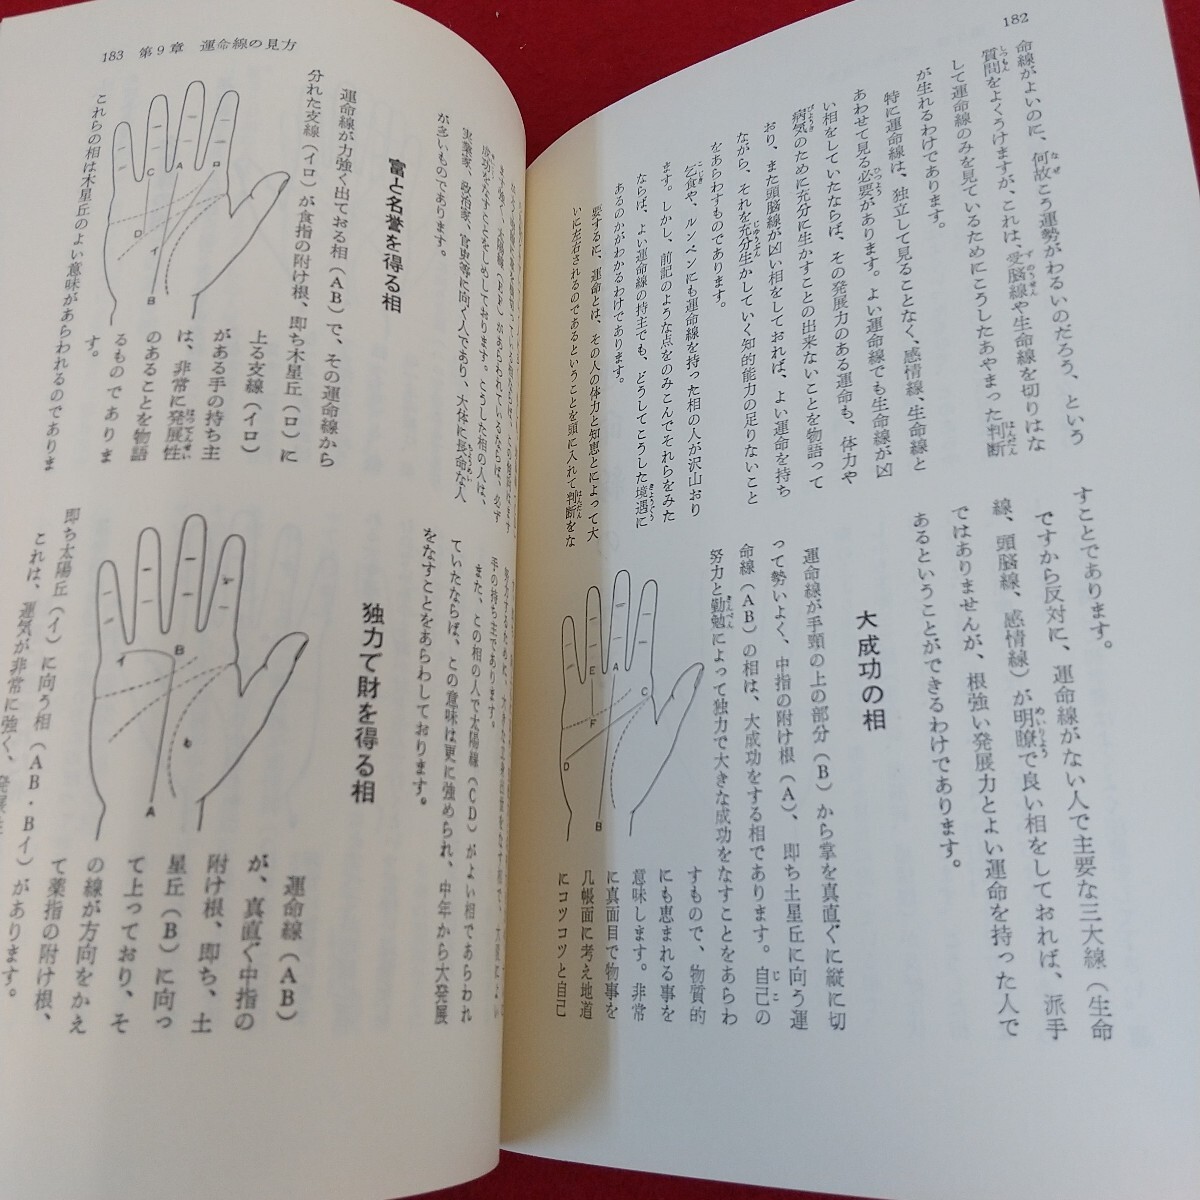 182
命線がよいのに、何故こう運勢がわるいのだろう、という
質問をよくうけますが、これは、受脳線や生命線を切りはな
して運命線のみを見ているためにこうしたあやまった判断
が生れるわけであります。
特に運命線は、独立して見ることなく、感情線、生命線と
あわせて見る必要があります。よい運命線でも生命線が凶
い相をしていたならば、その発展力のある運命も、体力や
病気のために充分に生かすことの出来ないことを物語って
おり、また頭脳線が凶い相をしておれば、よい運命を持ち
ながら、それを充分生かしていく知的能力の足りないこと
をあらわすものであります。
乞食や、ルンペンにも運命線を持った相の人が沢山おり
ます。しかし、前記のような点をのみこんでそれらをみた
ならば、よい運命線の持主でも、どうしてこうした境遇に
あるのかがわかるわけであります。
要するに、運命とは、その人の体力と知恵とによって大
いに左右されるのであるということを頭に入れて判断をな
すことであります。
ですから反対に、運命線がない人で主要な三大線（生命
線、頭脳線、感情線）が明瞭で良い相をしておれば、派手
ではありませんが、根強い発展力とよい運命を持った人で
あるということができるわけであります。
大成功の相
運命線が手頸の上の部分（B）から掌を真直ぐに縦に切
って勢いよく、中指の附け根（A）、即ち土星丘に向う運
命線（AB）の相は、大成功をする相であります。自己の
努力と勤勉によって独力で大きな成功をなすことをあらわ
すもので、物質的
にも恵まれる事を
意味します。非常
に真面目で物事を
几帳面に考え地道
にコツコツと自己
E
A
C
F
D
B
183 第9章 運命線の見方
手の持ち主であります。
また、この相の人で太陽線（CD）がよい相であらわれ
ていたならば、この意味は更に強められ、中年から大発展
をなすことをあらわしております。
成功をなすことをしめしております。こうした相の人は、
実業家、政治家、官吏等に向く人であり、大体に長命な人
が多いものであります。
富と名誉を得る相
運命線が力強く出ておる相（AB）で、その運命線から
分れた支線（イロ）が食指の附け根、即ち木星丘（ロ）に
上る支線（イロ）
がある手の持ち主
は、非常に発展性
のあることを物語
るものでありま
す。
これらの相は木星丘のよい意味があらわれるのでありま
C
A
ロ
D
イ
B
独力で財を得る相
運命線（AB）
が、真直ぐ中指の
附け根、即ち、土
星丘（B）に向っ
て上っており、そ
の線が方向をかえ
て薬指の附け根、
即ち太陽丘（イ）に向う相（AB・Bイ）があります。
これは、運気が非常に強く、
イ
B
A